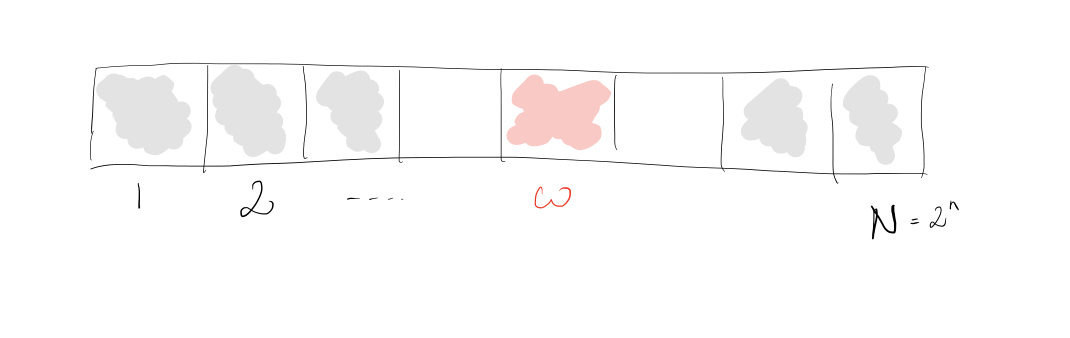 1 2 ---- ω N = 2ⁿ